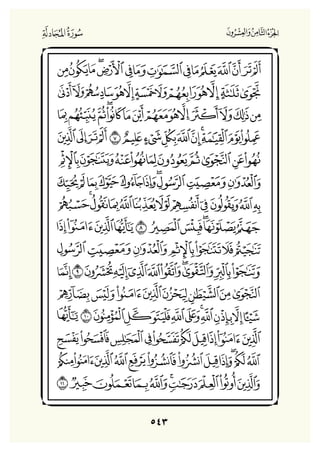 الجزء الثامن والعشرون سورة المجادلة
ألم تر أن الله يعلم ما في السماوات وما في الأرض ما يكون من
نجوى ثلاثة إلا هو رابعهم ولا خمسة إلا هو سادسهم ولا أدنى
من ذلك ولا أكثر إلا هو معهم أين ما كانوا ثم ينبئهم بما
عملوا يوم القيامة إن الله بكل شيء عليم ٧ ألم تر إلى الذين
نهوا عن النجوى ثم يعودون لما نهوا عنه ويتناجون بالإثم
والعدوان ومعصيت الرسول وإذا جاءوك حيوك بما لم يحيك
به الله ويقولون في أنفسهم لولا يعذبنا الله بما نقول حسبهم
جهنم يصلونها فبئس المصير ٨ يا أيها الذين آمنوا إذا
تناجيتم فلا تتناجوا بالإثم والعدوان ومعصيت الرسول
وتناجوا بالبر والتقوى واتقوا الله الذي إليه تحشرون ٩ إنما
النجوى من الشيطان ليحزن الذين آمنوا وليس بضارهم
شيئا إلا بإذن الله وعلى الله فليتوكل المؤمنون ١٠ يا أيها
الذين آمنوا إذا قيل لكم تفسحوا في المجالس فافسحوا يفسح
الله لكم وإذا قيل انشزوا فانشزوا يرفع الله الذين آمنوا منكم
والذين أوتوا العلم درجات والله بما تعملون خبير ١١
٥٤٣